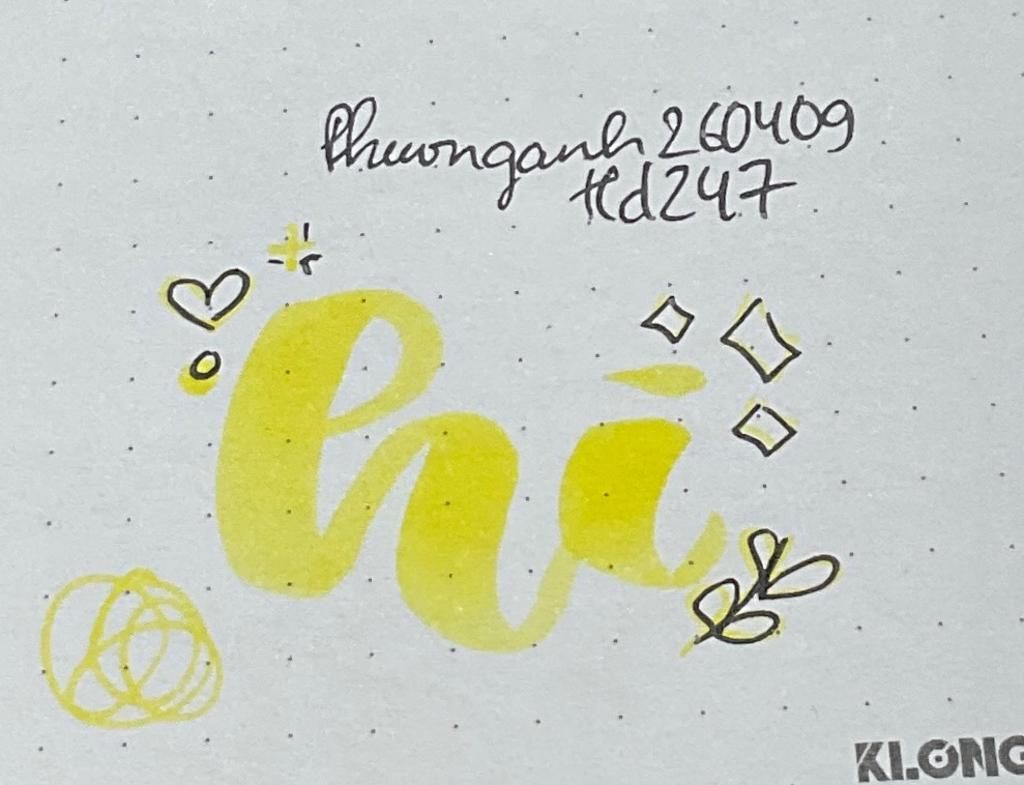 Phuonganh260409
tld247
hi
KLONG